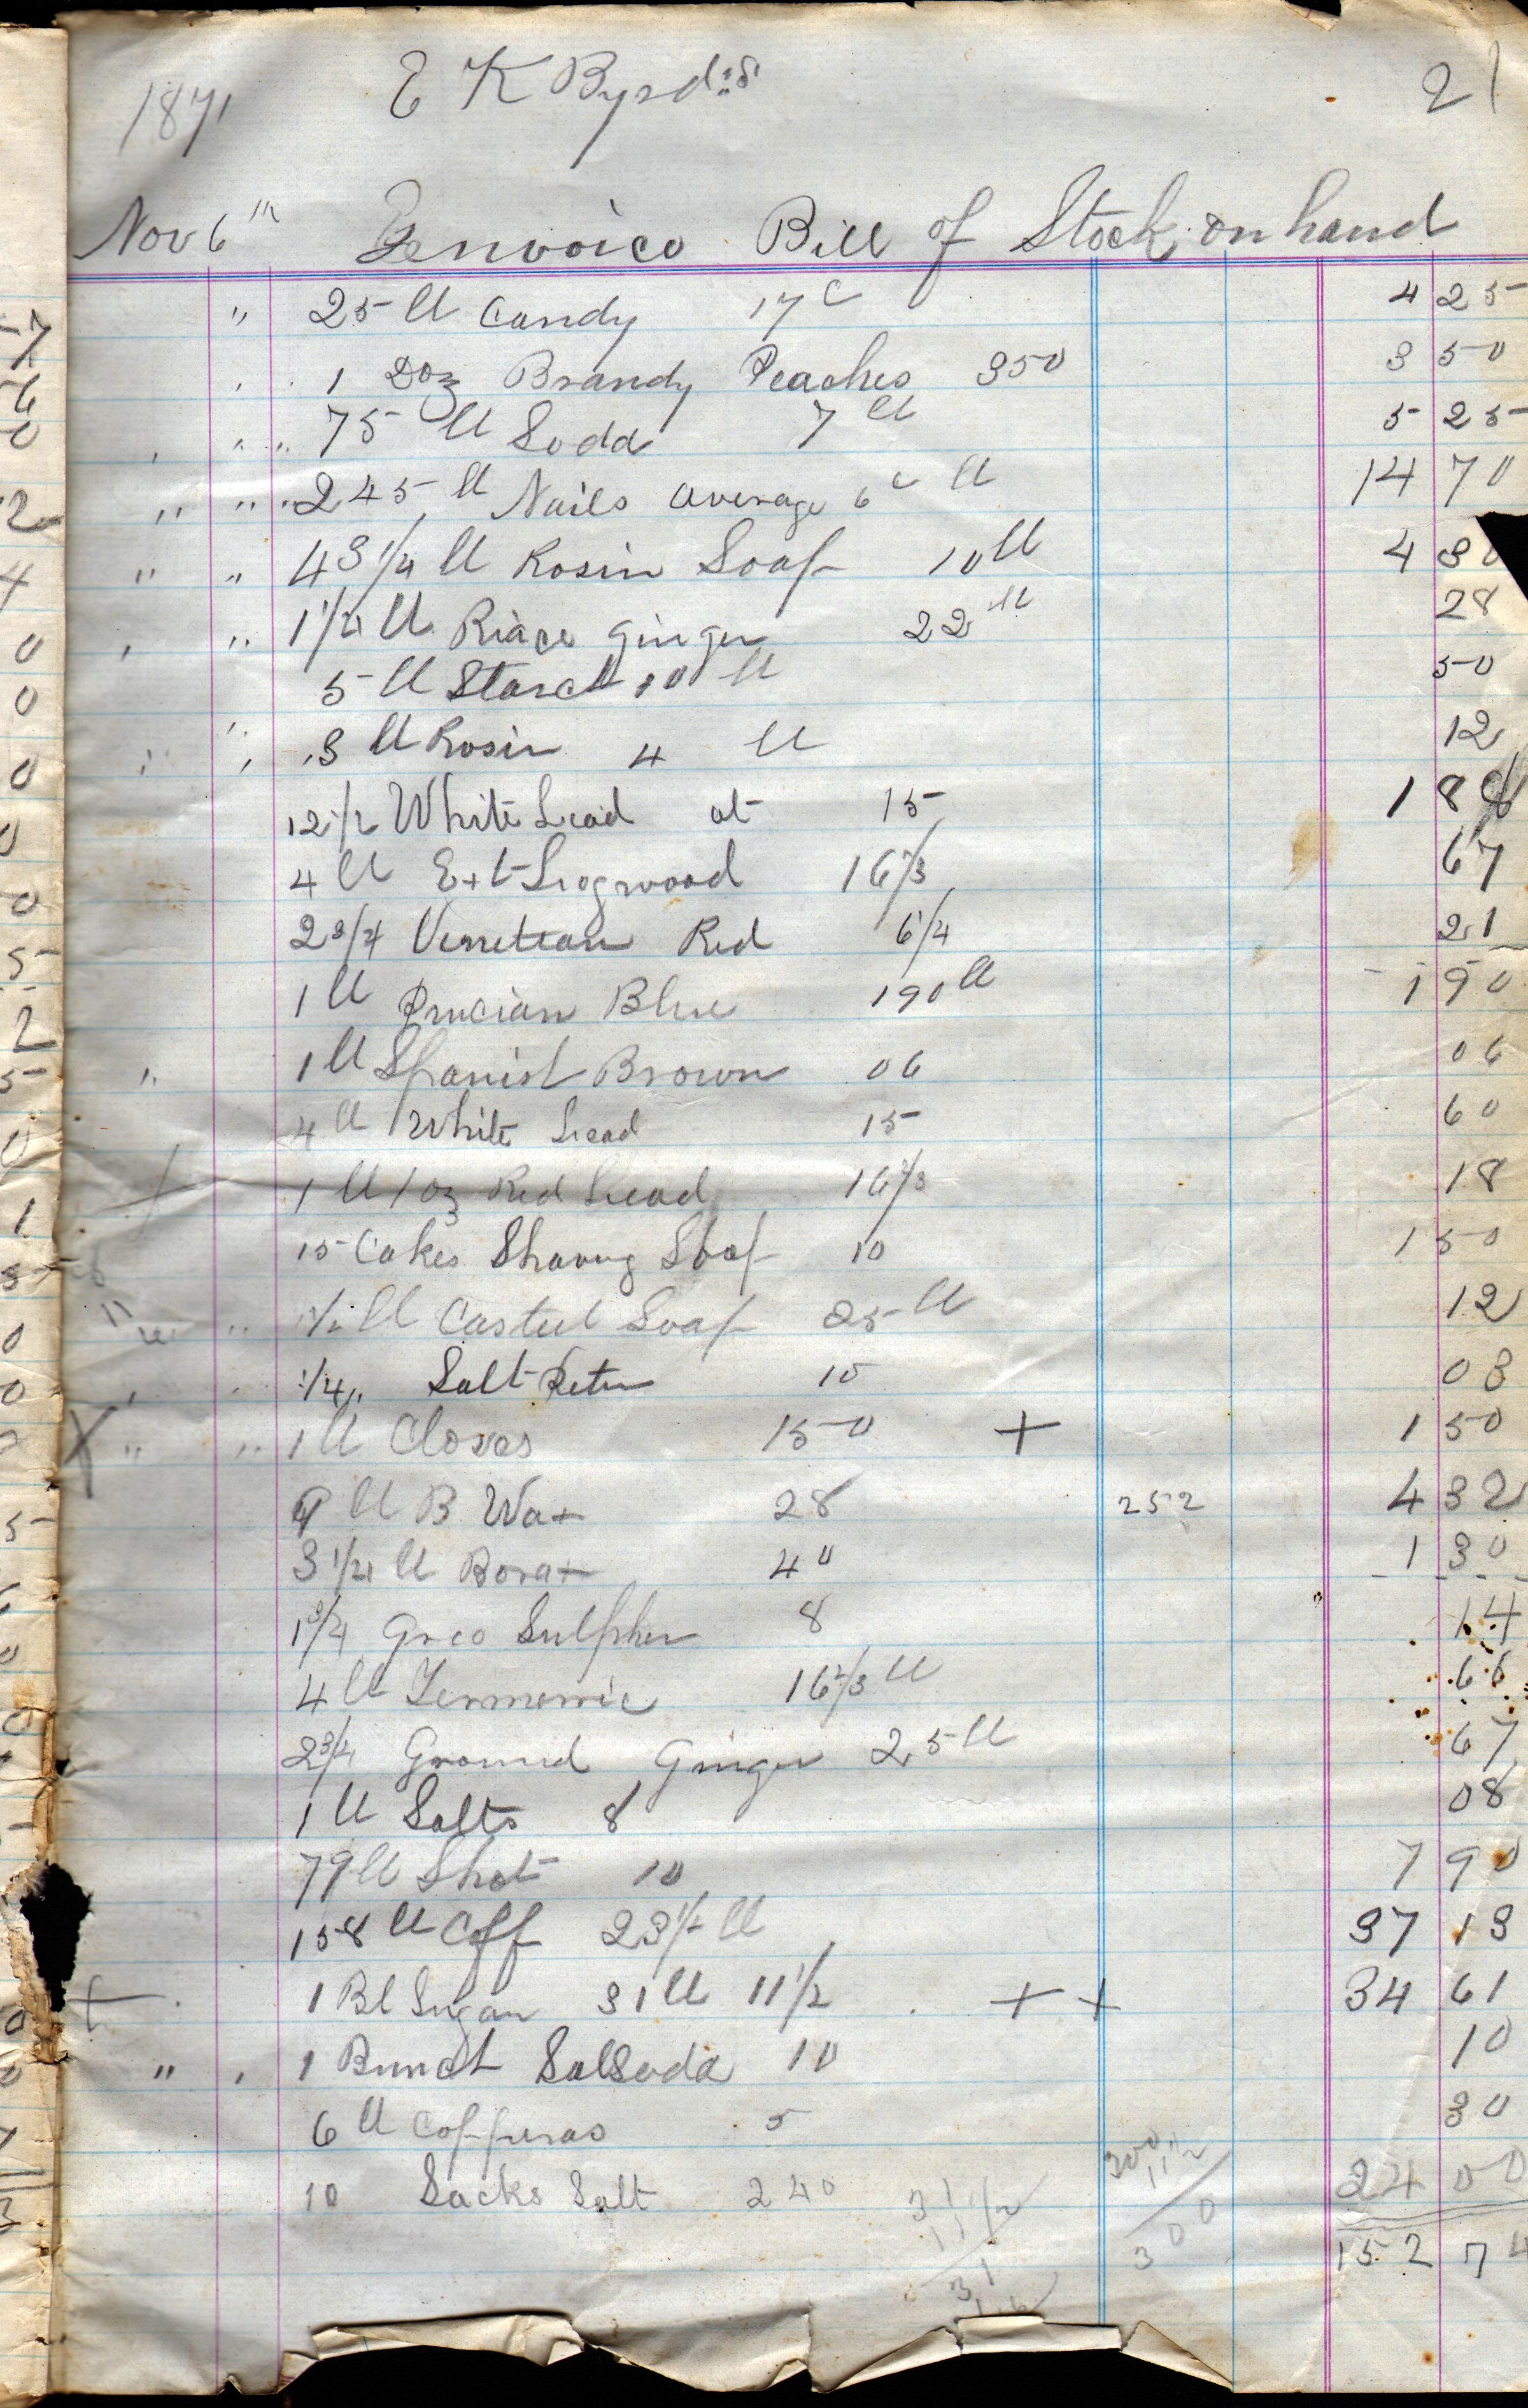 1871 E K Byrd's 21
Nov 6thIenvoice Bill of Stock on hand
" 25 ll Candy 17c 4 25
1 Doz Brandy Peaches 350 3 50
" " 75 ll Soda 7 ll 5 25
" " 245 ll Nails average 6c ll 14 70
" " 43 1/4 ll Rosin Soap 10 ll 4 30
" " 1 1/4 ll Riace Ginger 22 ll 28
5 ll Starch 10 ll 50
" " 3 ll Rosin 4 ll 12
12 1/2 White Lead at 15 1 88
4 ll Ext Logwood 16 2/3 67
2 3/4 Venetian Red 6 1/4 21
1 ll Prucian Blue 190 ll 1 90
" 1 ll Spanish Brown 06 06
4 ll White Lead 15 60
1 ll 1 oz Red Lead 16 2/3 18
15 Cakes Shaving Soap 10 1 50
" " 1/2 ll Casteel Soap 25 ll 12
1/4 " Salt Peter 10 03
X " " 1 ll Cloves 150 + 1 50
9 ll B Wax 28 252 4 32
3 1/4 ll Borax 40 1 30
1 3/4 Sulpher 8 14
4 ll Termerric 16 2/3 ll 66
2 3/4 Ground Ginger 25 ll 67
1 ll Salts 8 08
79 ll Shot 10 7 90
158 ll Coff 23 1/2 ll 37 13
+ 1 Bl Sugar 31 ll 11 1/2 + + 34 61
" " 1 Bunch Sal Soda 10 10
6 ll Copperas 5 30
10 Sacks Salt 240 24 00
300
152 74